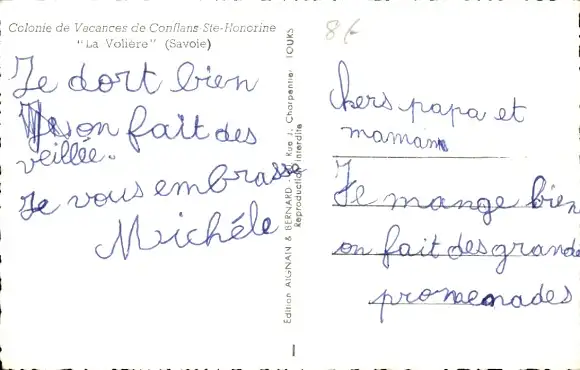 Colonie de Vacances de Conflans-Ste-Honorine
"La Volière" (Savoie)
86
chers papa et
maman
Je mange bien
on fait des grande
promenades
Je dort bien
on fait des
veillée.
Je vous embrasse
Michéle
Edition AIGNAIN & BERNARD 1, Rue J. Charpentier TOURS
Reproduction interdite